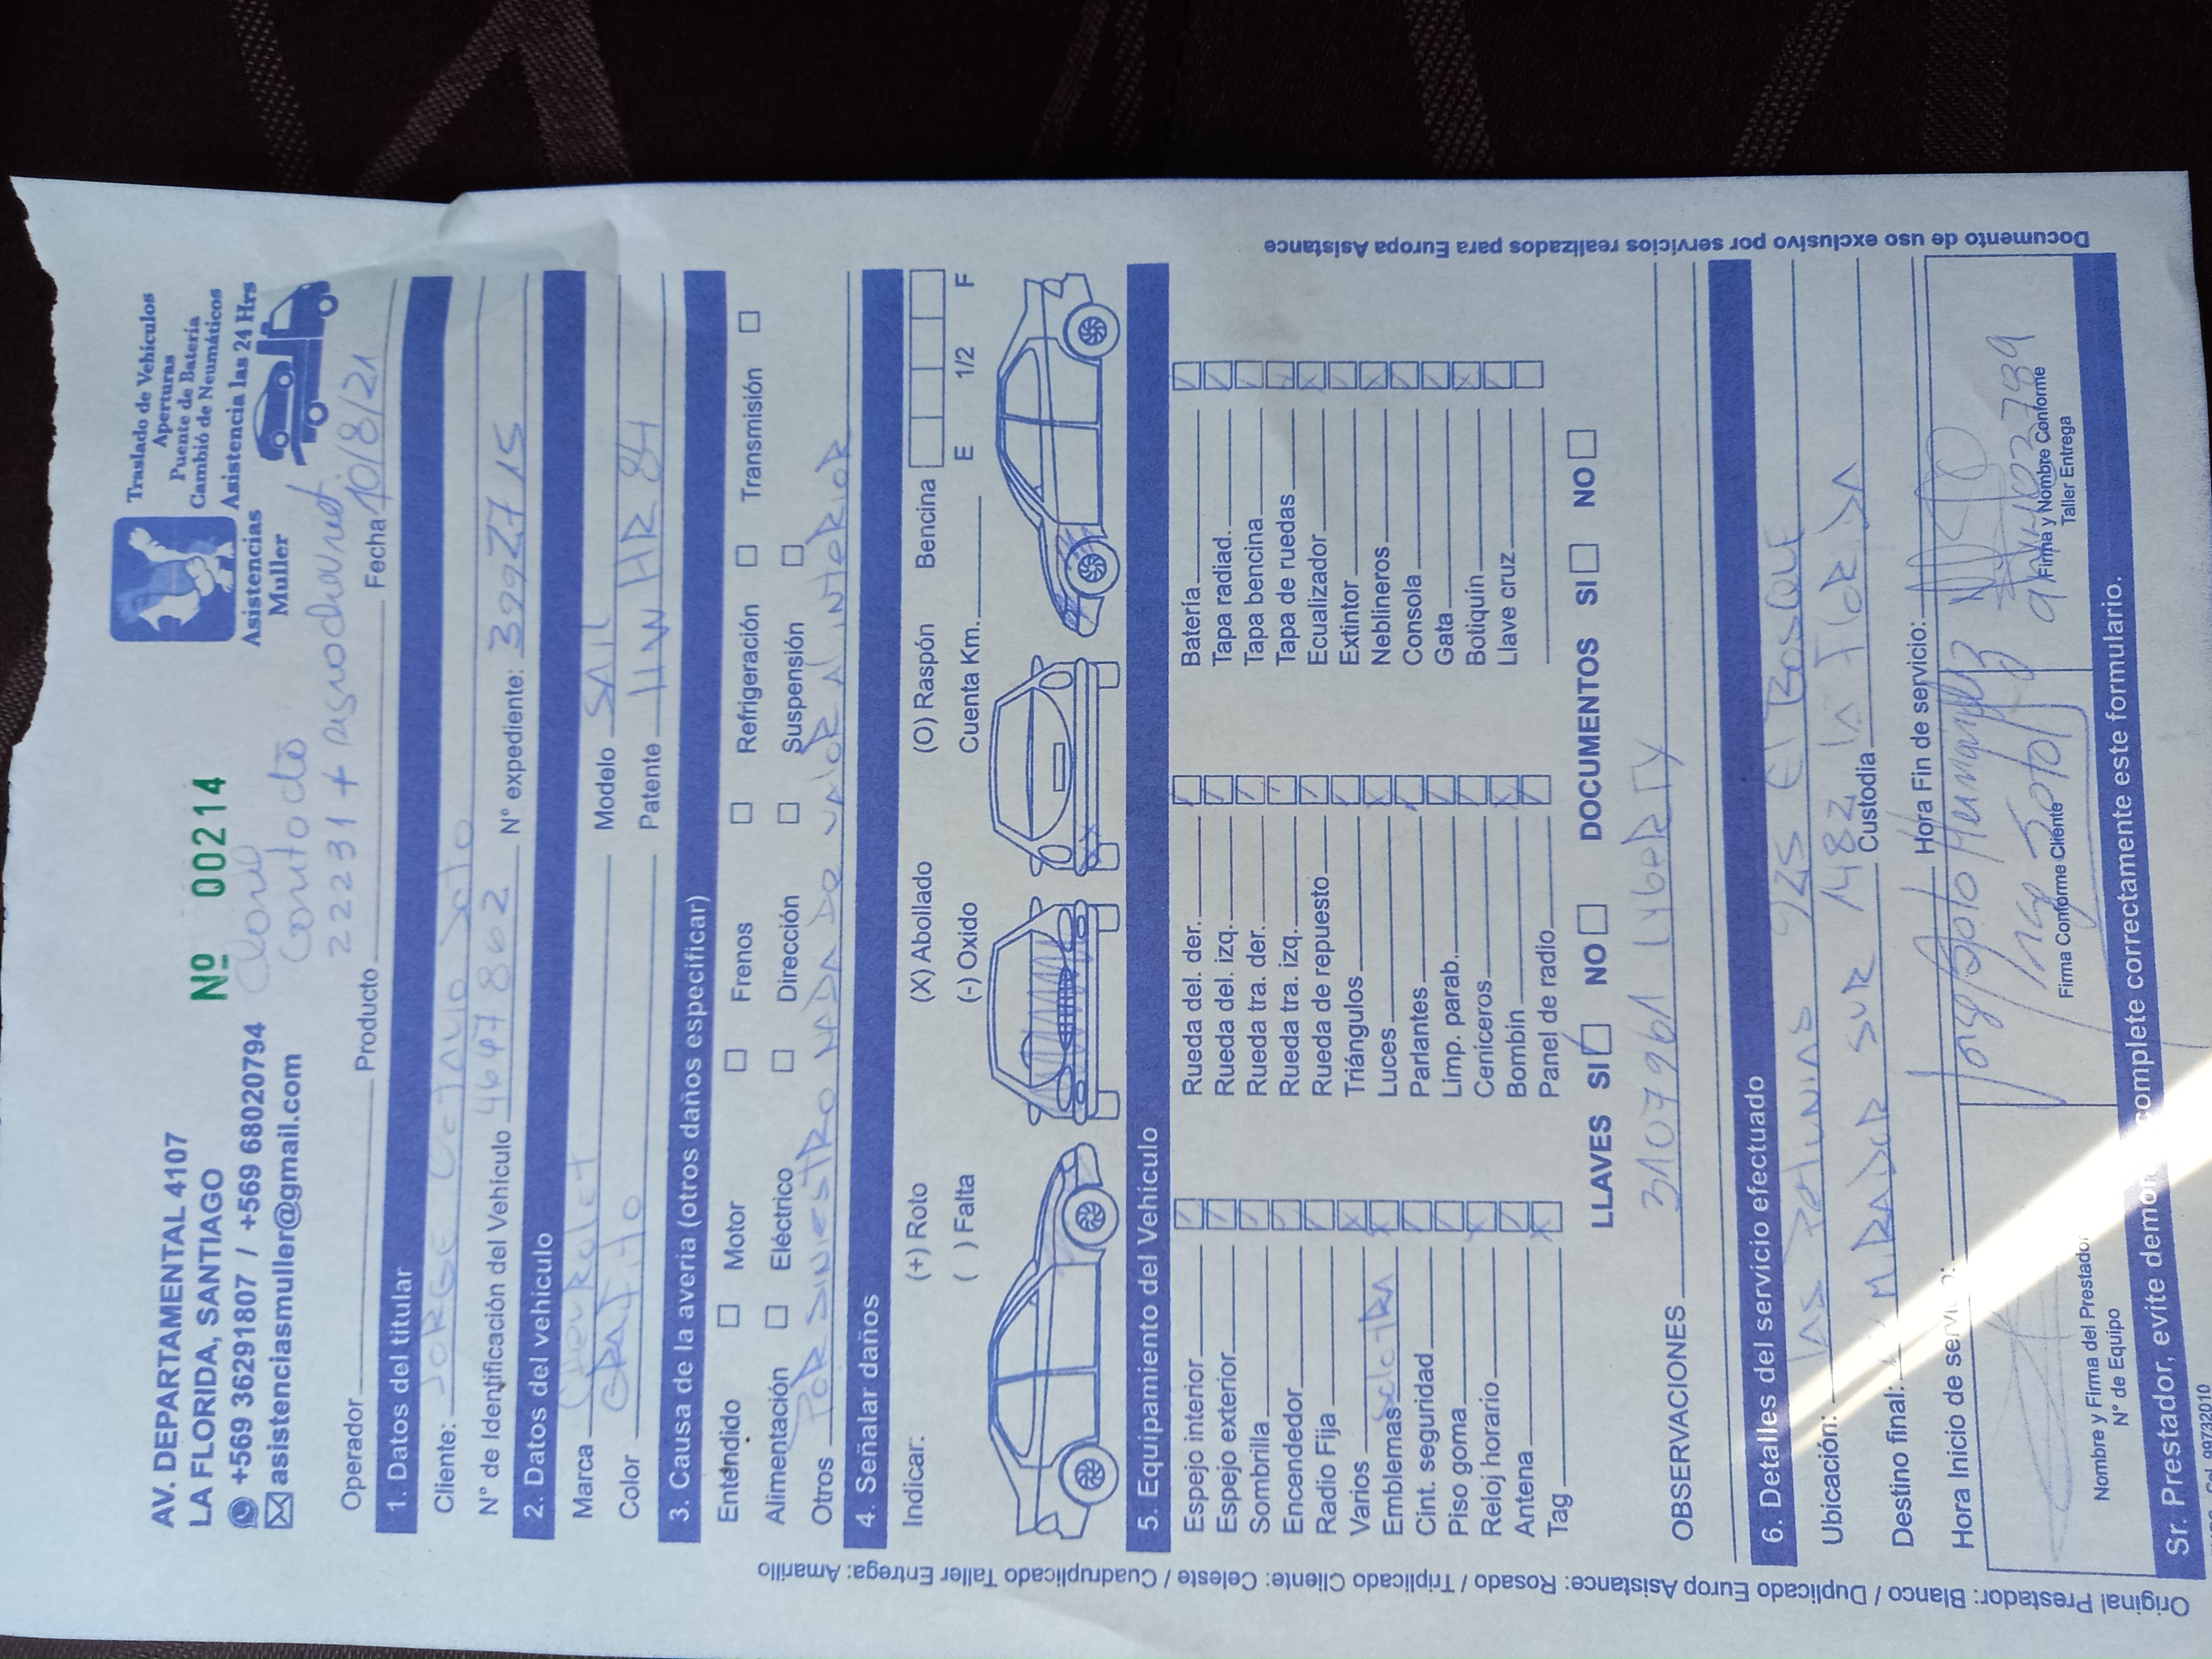 AV. DEPARTAMENTAL 4107
LA FLORIDA, SANTIAGO
+569 36291807 / +569 68020794
asistenciasmuller@gmail.com
Nº 00214
Asistencias
Muller
Traslado de Vehículos
Aperturas
Puente de Batería
Cambió de Neumáticos
Asistencia las 24 Hrs
22231 +
Operador Producto Fecha 10/8/21
1. Datos del titular
Cliente: JORGE Soto
N° de Identificación del Vehículo 4647862 N° expediente: 3992715
2. Datos del vehículo
Marca Chevrolet Modelo SAIL
Color GRAFITO Patente HWHR 84
3. Causa de la avería (otros daños especificar)
Enténdido Motor Frenos Refrigeración Transmisión
Alimentación Eléctrico Dirección Suspensión
Otros POR SINIESTRO NADA DE VALOR AL INTERIOR
4. Señalar daños
Indicar: (+) Roto (X) Abollado (O) Raspón Bencina
( ) Falta (-) Oxido Cuenta Km. E 1/2 F
5. Equipamiento del Vehículo
Espejo interior Rueda del. der. Batería
Espejo exterior Rueda del. izq. Tapa radiad.
Sombrilla Rueda tra. der. Tapa bencina
Encendedor Rueda tra. izq. Tapa de ruedas
Radio Fija Rueda de repuesto Ecualizador
Varios Triángulos Extintor
Emblemas Luces Neblineros
Cint. seguridad Parlantes Consola
Piso goma Limp. parab. Gata
Reloj horario Ceniceros Botiquín
Antena Bombin Llave cruz
Tag Panel de radio
LLAVES SI NO DOCUMENTOS SI NO
OBSERVACIONES 31079961 LYBERTY
6. Detalles del servicio efectuado
Ubicación: LAS PETUNIAS 925 El BOSQUE
Destino final: MIRADOR SUR 1482 Custodia LA FLORIDA
Hora Inicio de servicio: Hora Fin de servicio:
Jorge Soto
Nombre y Firma del Prestador
N° de Equipo
Firma Conforme Cliente
Firma y Nombre Conforme
Taller Entrega
Sr. Prestador, evite demoras, complete correctamente este formulario.
Original Prestador: Blanco / Duplicado Europ Asistance: Rosado / Triplicado Cliente: Celeste / Cuadruplicado Taller Entrega: Amarillo
Documento de uso exclusivo por servicios realizados para Europa Asistance